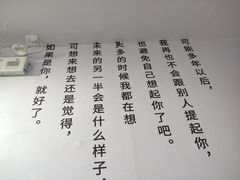 可能多年以后，
我再也不会跟别人提起你，
也避免自己想起你了吧。
更多的时候我都在想
未来的另一半会是什么样子，
可想来想去还是觉得，
如果是你，就好了。